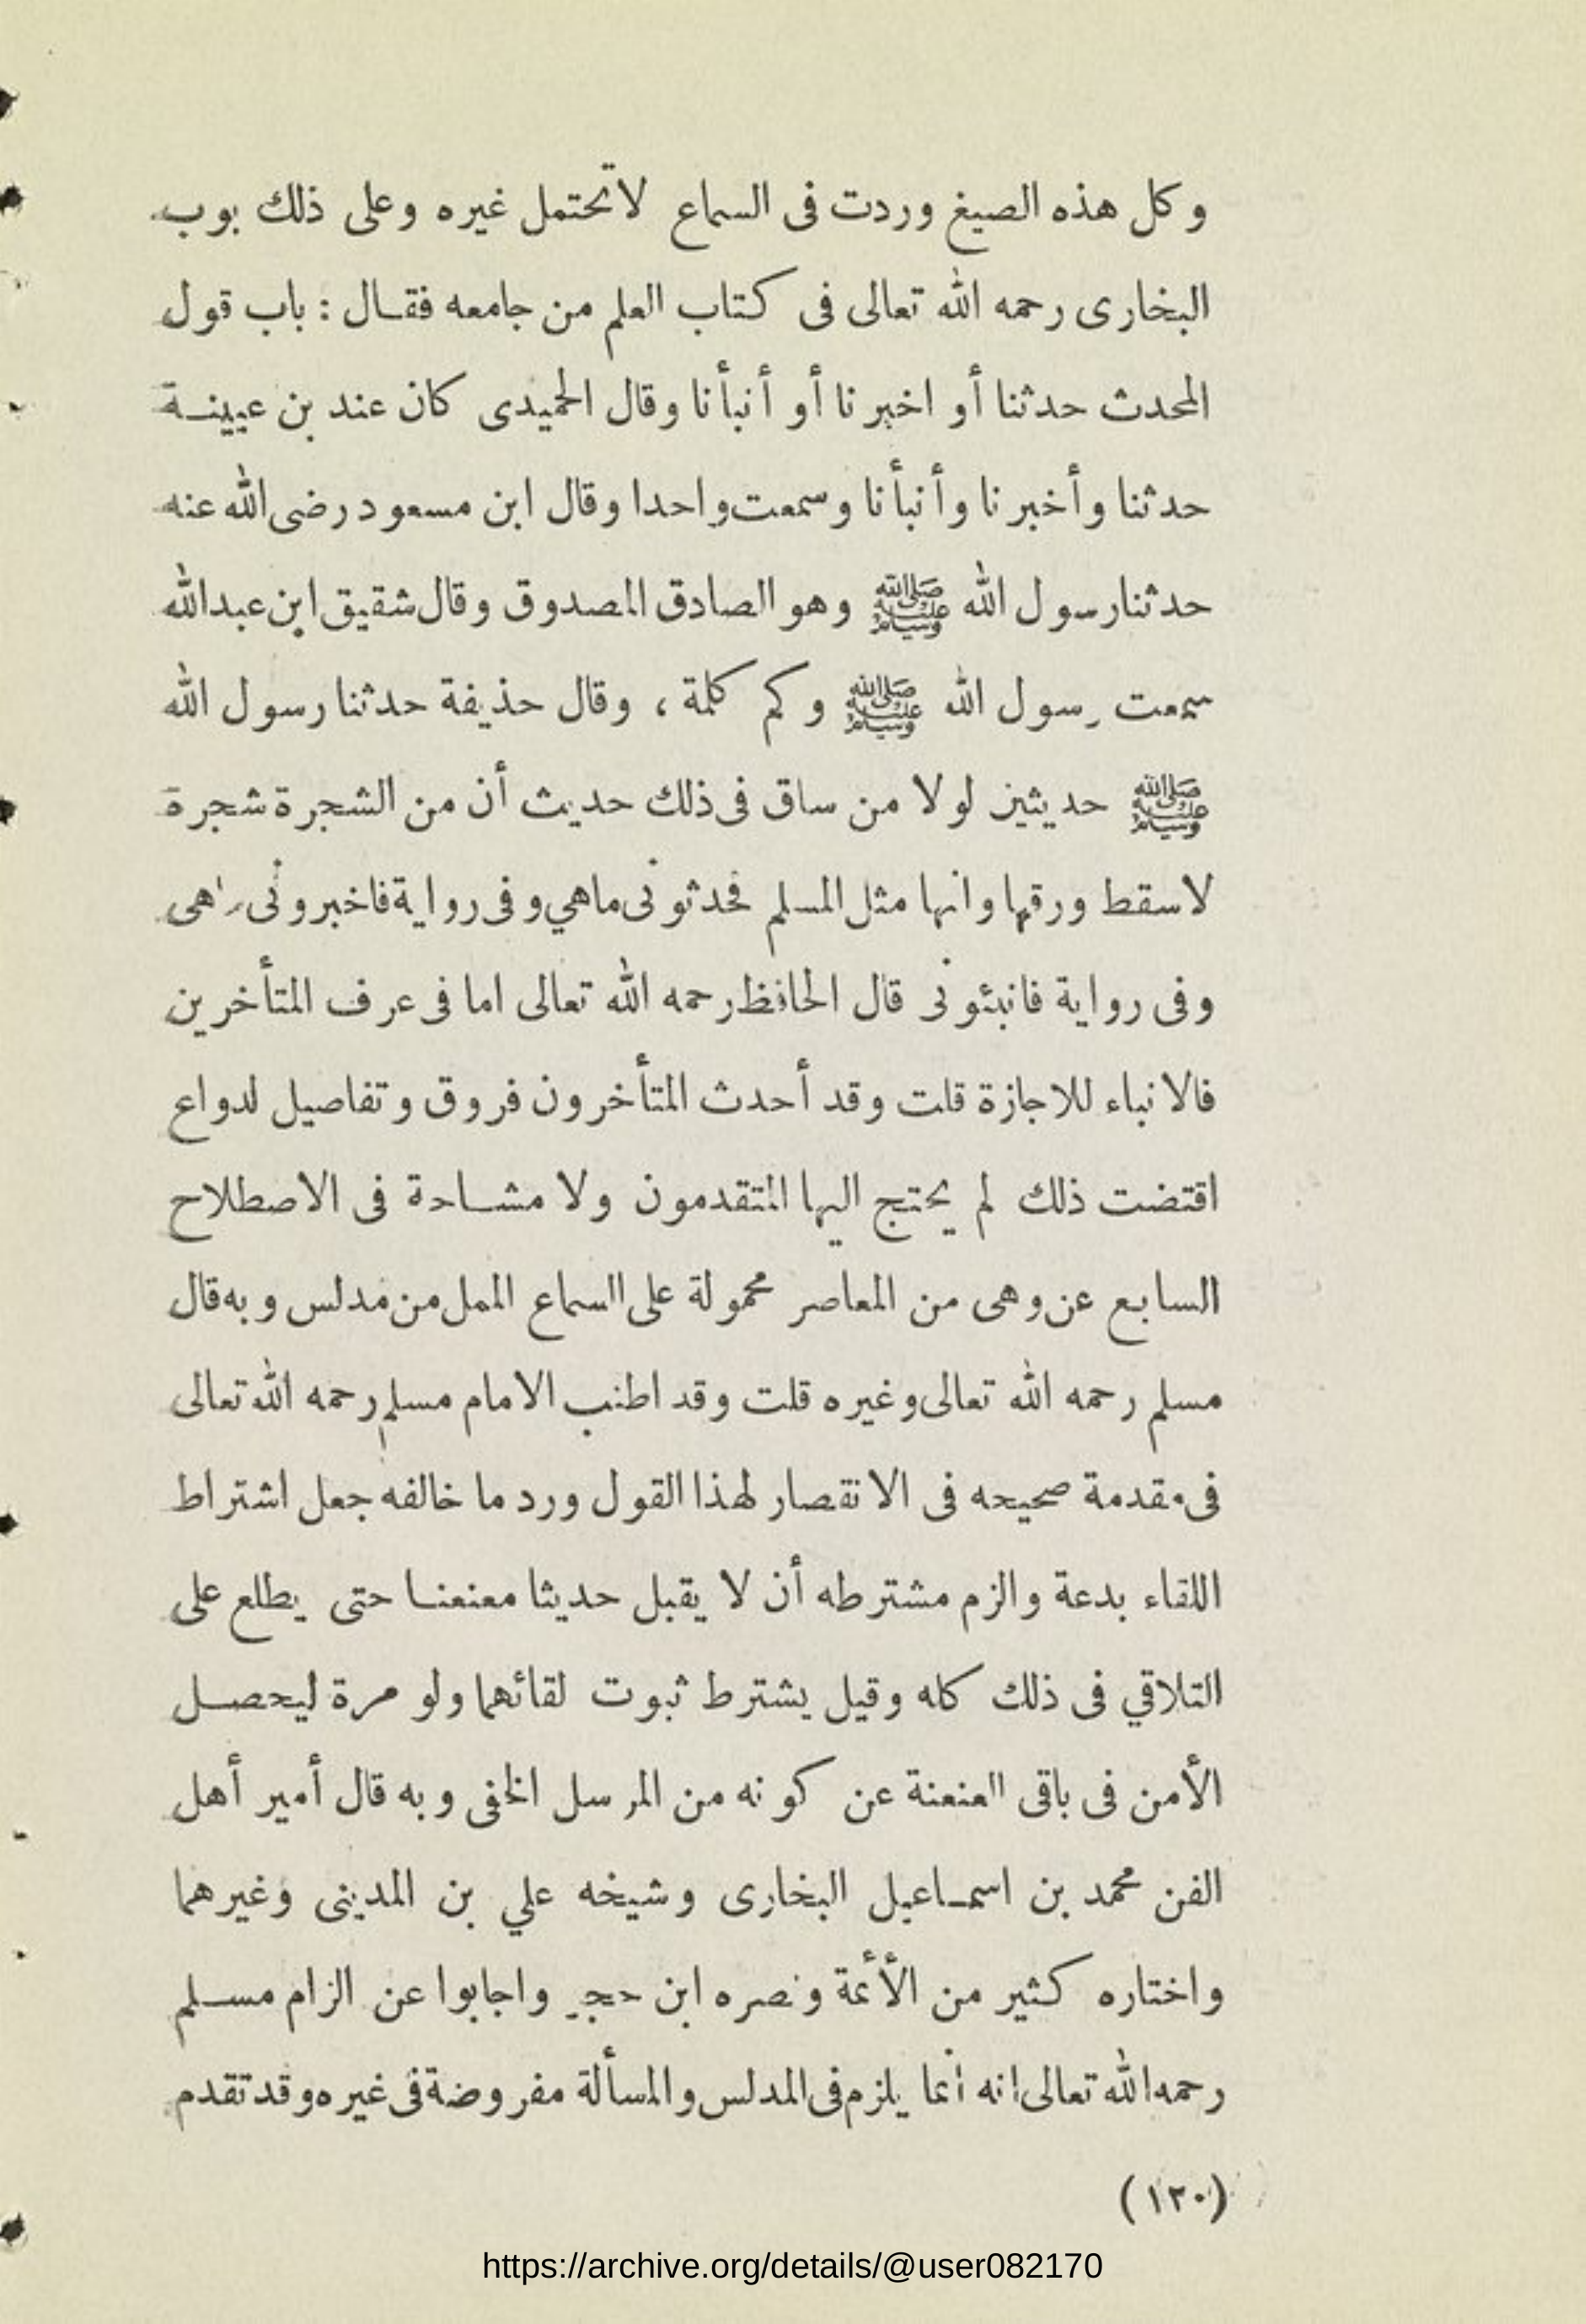 وكل هذه الصيغ وردت فى السماع لاتحتمل غيره وعلى ذلك بوب
البخارى رحمه الله تعالى فى كتاب العلم من جامعه فقال : باب قول
المحدث حدثنا أو اخبرنا أو أنبأنا وقال الحميدى كان عند بن عيينة
حدثنا وأخبرنا وأنبأنا وسمعت واحدا وقال ابن مسعود رضى الله عنه
حدثنا رسول الله ﷺ وهو الصادق المصدوق وقال شقيق ابن عبدالله
سمعت رسول الله ﷺ وكم كلمة ، وقال حذيفة حدثنا رسول الله
ﷺ حديثين لولا من ساق فى ذلك حديث أن من الشجرة شجرة
لاسقط ورقها وانها مثل المسلم فحدثونى ماهي وفى رواية فاخبرونى هى
وفى رواية فانبئونى قال الحافظ رحمه الله تعالى اما فى عرف المتأخرين
فالانباء للاجازة قلت وقد أحدث المتأخرون فروق وتفاصيل لدواع
اقتضت ذلك لم يحتج اليها المتقدمون ولا مشاحة فى الاصطلاح
السابع عن وهى من المعاصر محمولة على السماع الممل من مدلس وبه قال
مسلم رحمه الله تعالى وغيره قلت وقد اطنب الامام مسلم رحمه الله تعالى
فى مقدمة صحيحه فى الانقصار لهذا القول ورد ما خالفه جعل اشتراط
اللقاء بدعة والزم مشترطه أن لا يقبل حديثا معنعنا حتى يطلع على
التلاقي فى ذلك كله وقيل يشترط ثبوت لقائهما ولو مرة ليحصل
الأمن فى باقى العنعنة عن كونه من المرسل الخفى وبه قال أمير أهل
الفن محمد بن اسماعيل البخارى وشيخه علي بن المدينى وغيرهما
واختاره كثير من الأئمة ونصره ابن حجر واجابوا عن الزام مسلم
رحمه الله تعالى انه انما يلزم فى المدلس والمسألة مفروضة فى غيره وقد تقدم
(١٢٠)
https://archive.org/details/@user082170